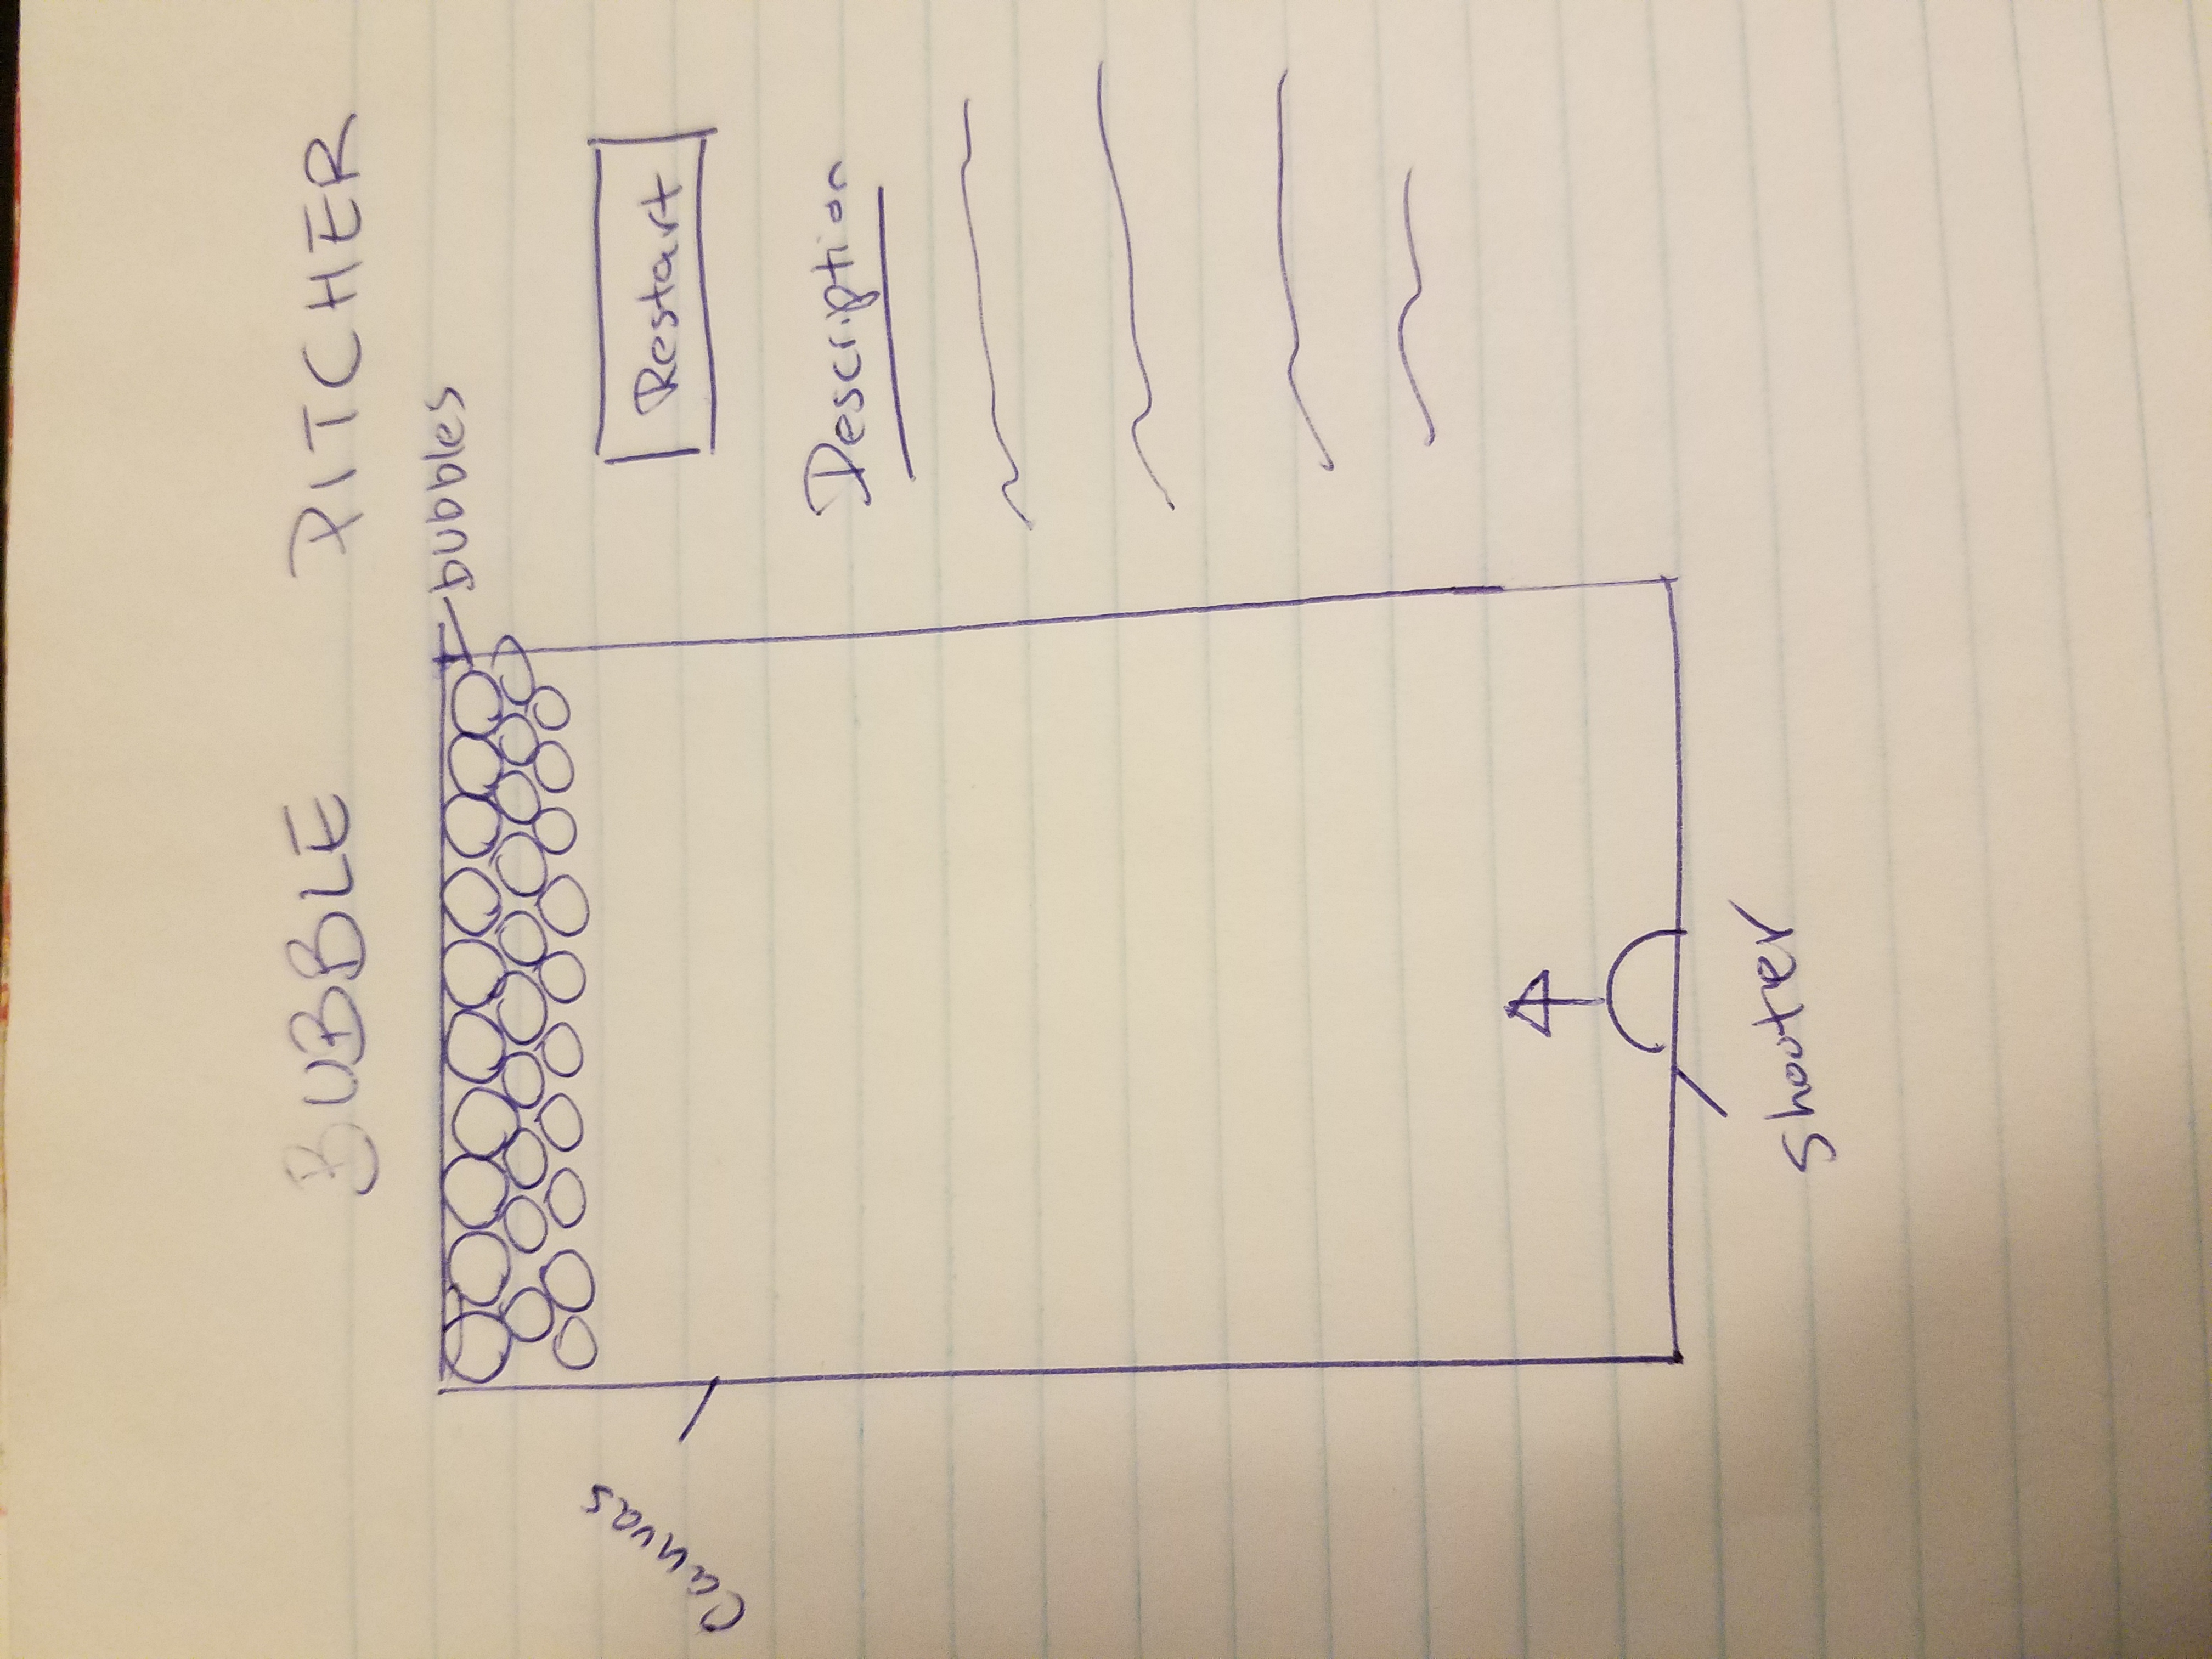 BUBBLE PITCHER
bubbles
Canvas
Restart
Description
shooter